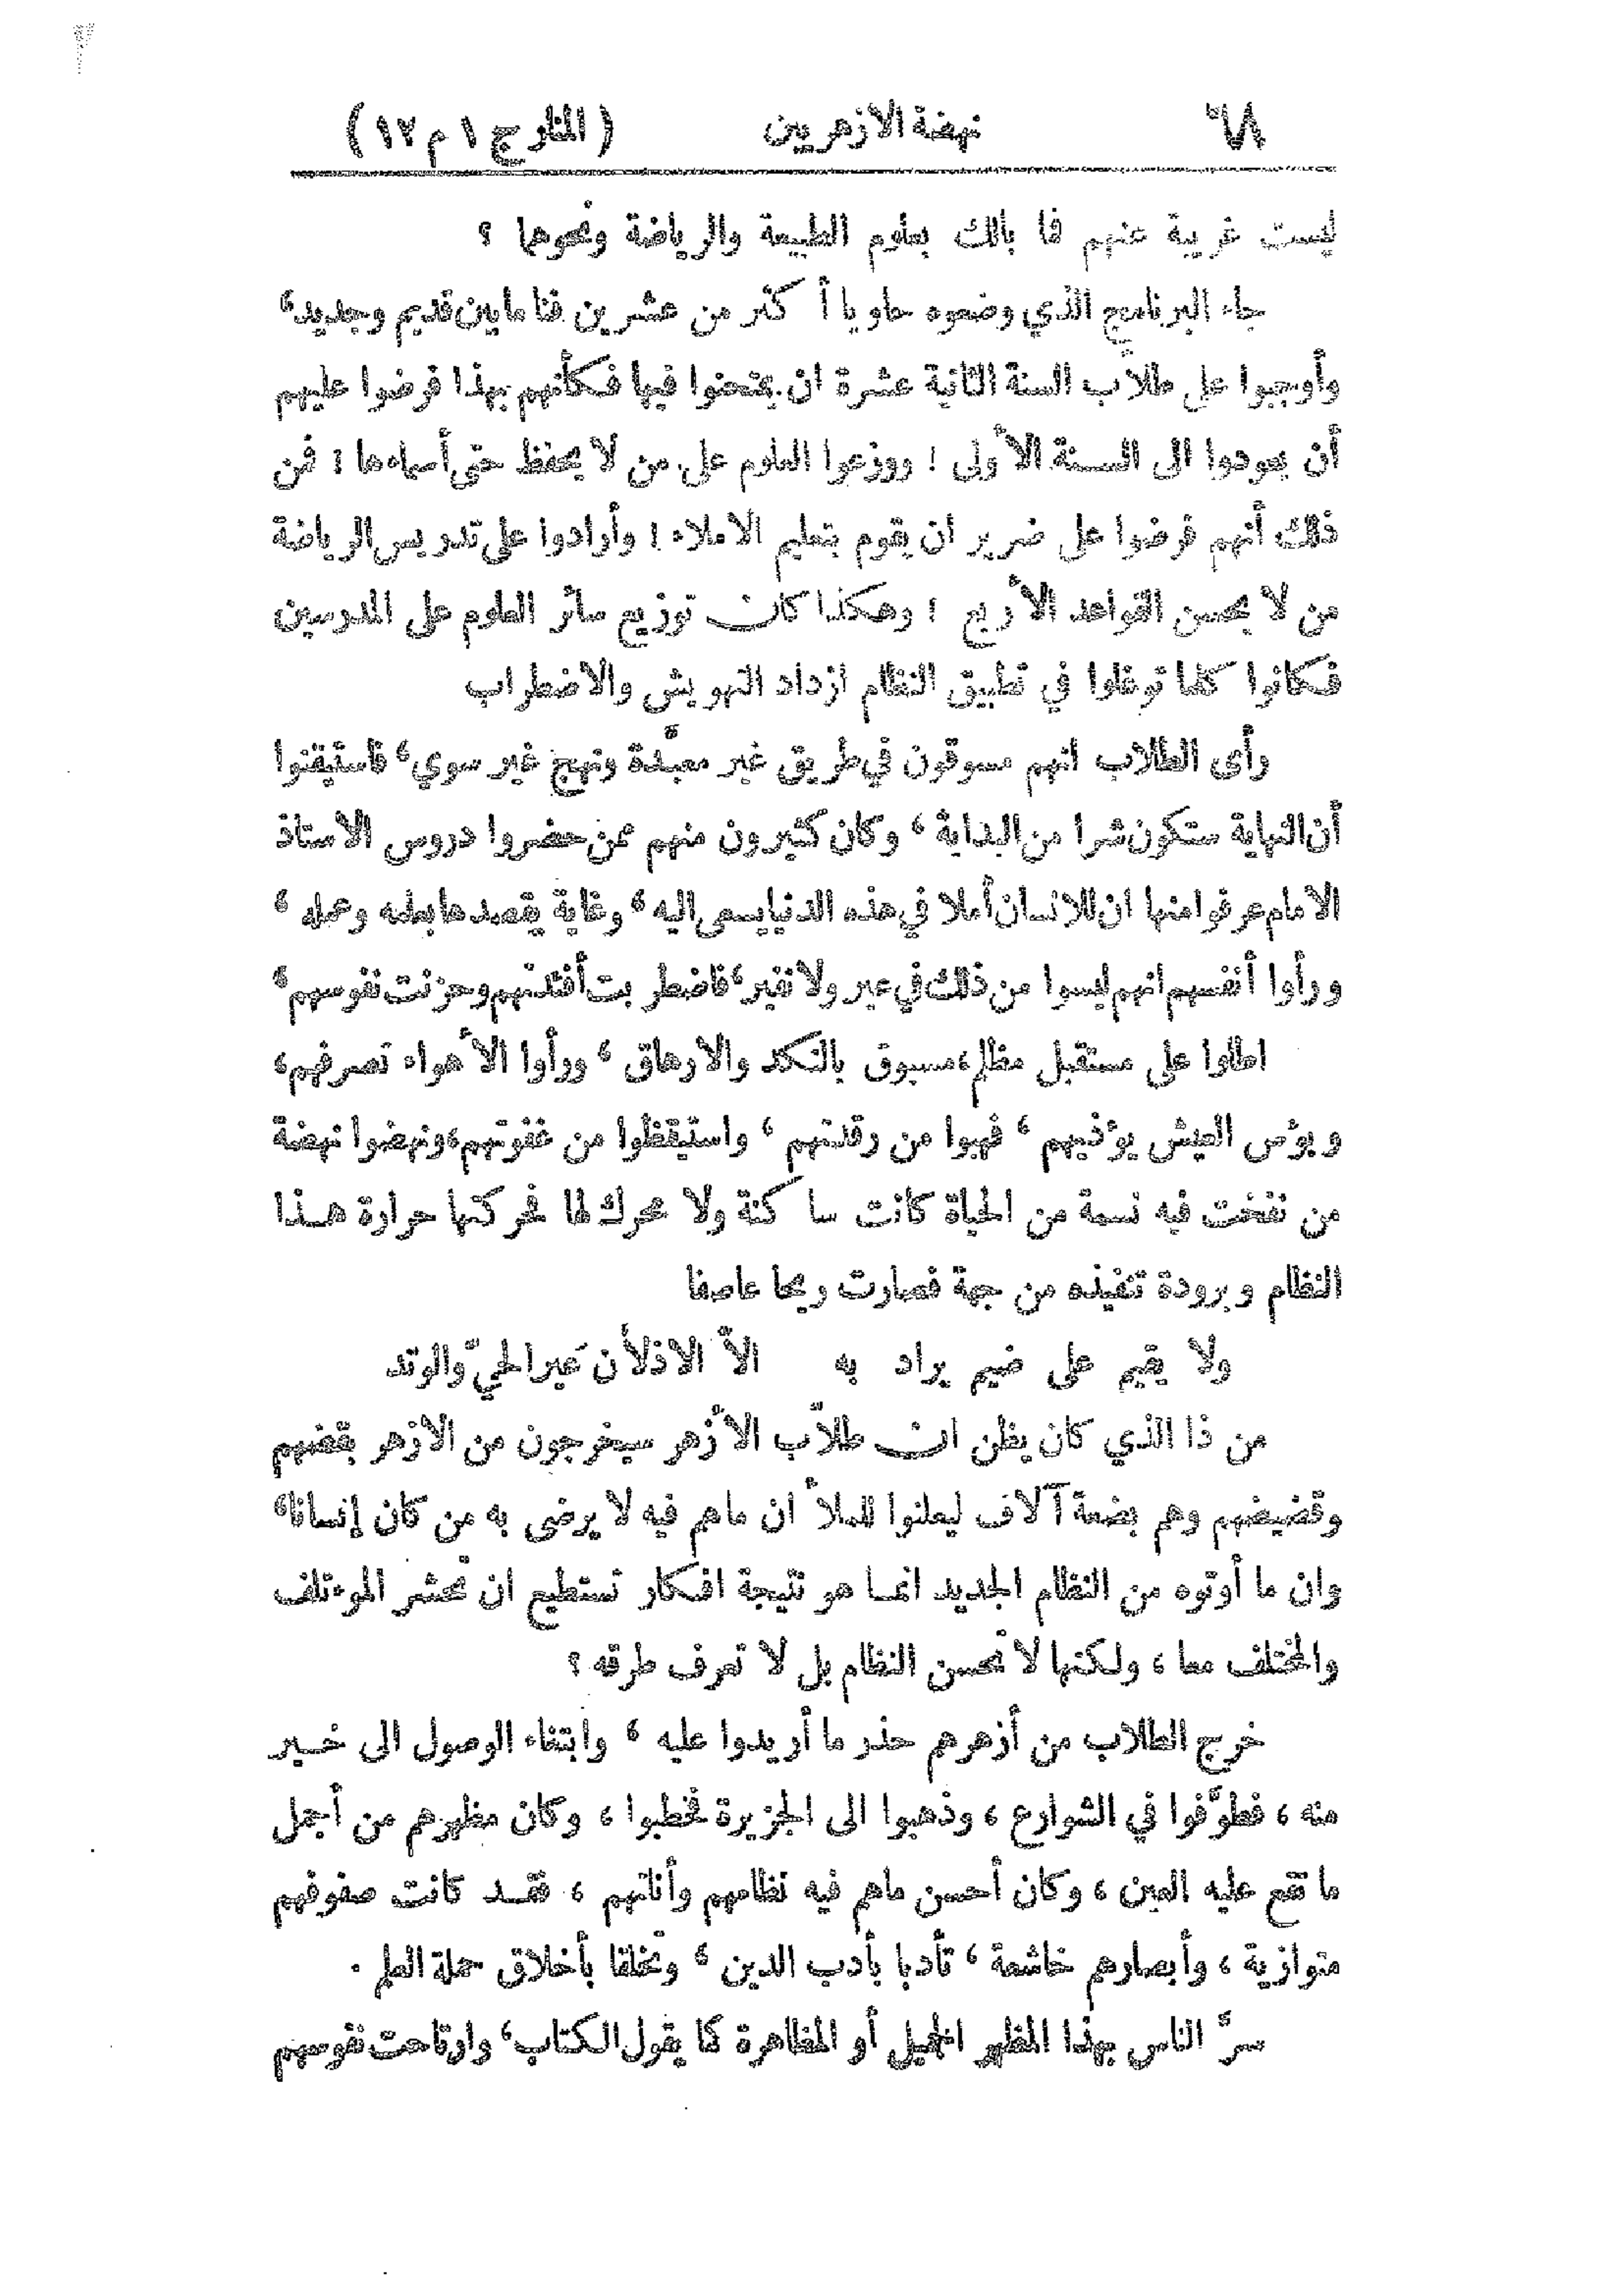 ٦٨ نهضة الازهريين (المنار ج ١ م ١٢)
ليست غريبة عنهم فما بالك بعلوم الطبيعة والرياضة ونحوها ؟
جاء البرنامج الذي وضعوه حاويا أكثر من عشرين فنا مابين قديم وجديد،
وأوجبوا على طلاّب السنة الثانية عشرة ان يمتحنوا فيها فكأنهم بهذا فرضوا عليهم
أن يعودوا الى السنة الأولى ! ووزعوا العلوم على من لا يحفظ حتى أسماءها ! فمن
ذلك أنهم فرضوا على ضرير ان يقوم بتعليم الاملاء ! وأرادوا على تدريس الرياضة
من لا يحسن القواعد الأربع ! وهكذا كان توزيع سائر العلوم على المدرسين
فكانوا كلما توغلوا في تطبيق النظام ازداد التهويش والاضطراب
رأى الطلاب انهم مسوقون في طريق غير معبَّدة ونهج غير سوي، فاستيقنوا
أن النهاية ستكون شرا من البداية ، وكان كثيرون منهم ممن حضروا دروس الاستاذ
الامام عرفوا منها ان للانسان أملا في هذه الدنيا يسعى اليه، وغاية يقصدها بعلمه وعمله ،
ورأوا أنفسهم انهم ليسوا من ذلك في عير ولا نفير، فاضطربت أفئدتهم وحزنت نفوسهم،
اطلوا على مستقبل مظلم، مسبوق بالنكد والارهاق ، ورأوا الأهواء تصرفهم،
وبؤس العيش يؤذيهم ، فهبوا من رقدتهم ، واستيقظوا من غفوتهم، ونهضوا نهضة
من نفخت فيه نسمة من الحياة كانت ساكنة ولا محرك لها فحركتها حرارة هذا
النظام وبرودة تنفيذه من جهة فصارت ريحا عاصفا
ولا يقيم على ضيم يراد به الاّ الاذلأن عَير الحيّ والوتد
من ذا الذي كان يظن ان طلاّب الأزهر سيخرجون من الازهر بقضهم
وقضيضهم وهم بضعة آلاف ليعلنوا للملأ ان ماهم فيه لا يرضى به من كان إنسانا،
وان ما أوتوه من النظام الجديد انما هو نتيجة افكار تستطيع ان تحشر المؤتلف
والمختلف معا ، ولكنها لا تحسن النظام بل لا تعرف طرقه ؟
خرج الطلاب من أزهرهم حذر ما أريدوا عليه ، وابتغاء الوصول الى خير
منه ، فطوَّفوا في الشوارع ، وذهبوا الى الجزيرة فخطبوا ، وكان مظهرهم من أجمل
ما تقع عليه العين ، وكان أحسن ماهم فيه نظامهم وأناتهم ، فقد كانت صفوفهم
متوازية ، وأبصارهم خاشعة ، تأدبا بأدب الدين ، وتخلقا بأخلاق حملة العلم .
سرَّ الناس بهذا المظهر الجميل أو المظاهرة كما يقول الكتاب، وارتاحت نفوسهم